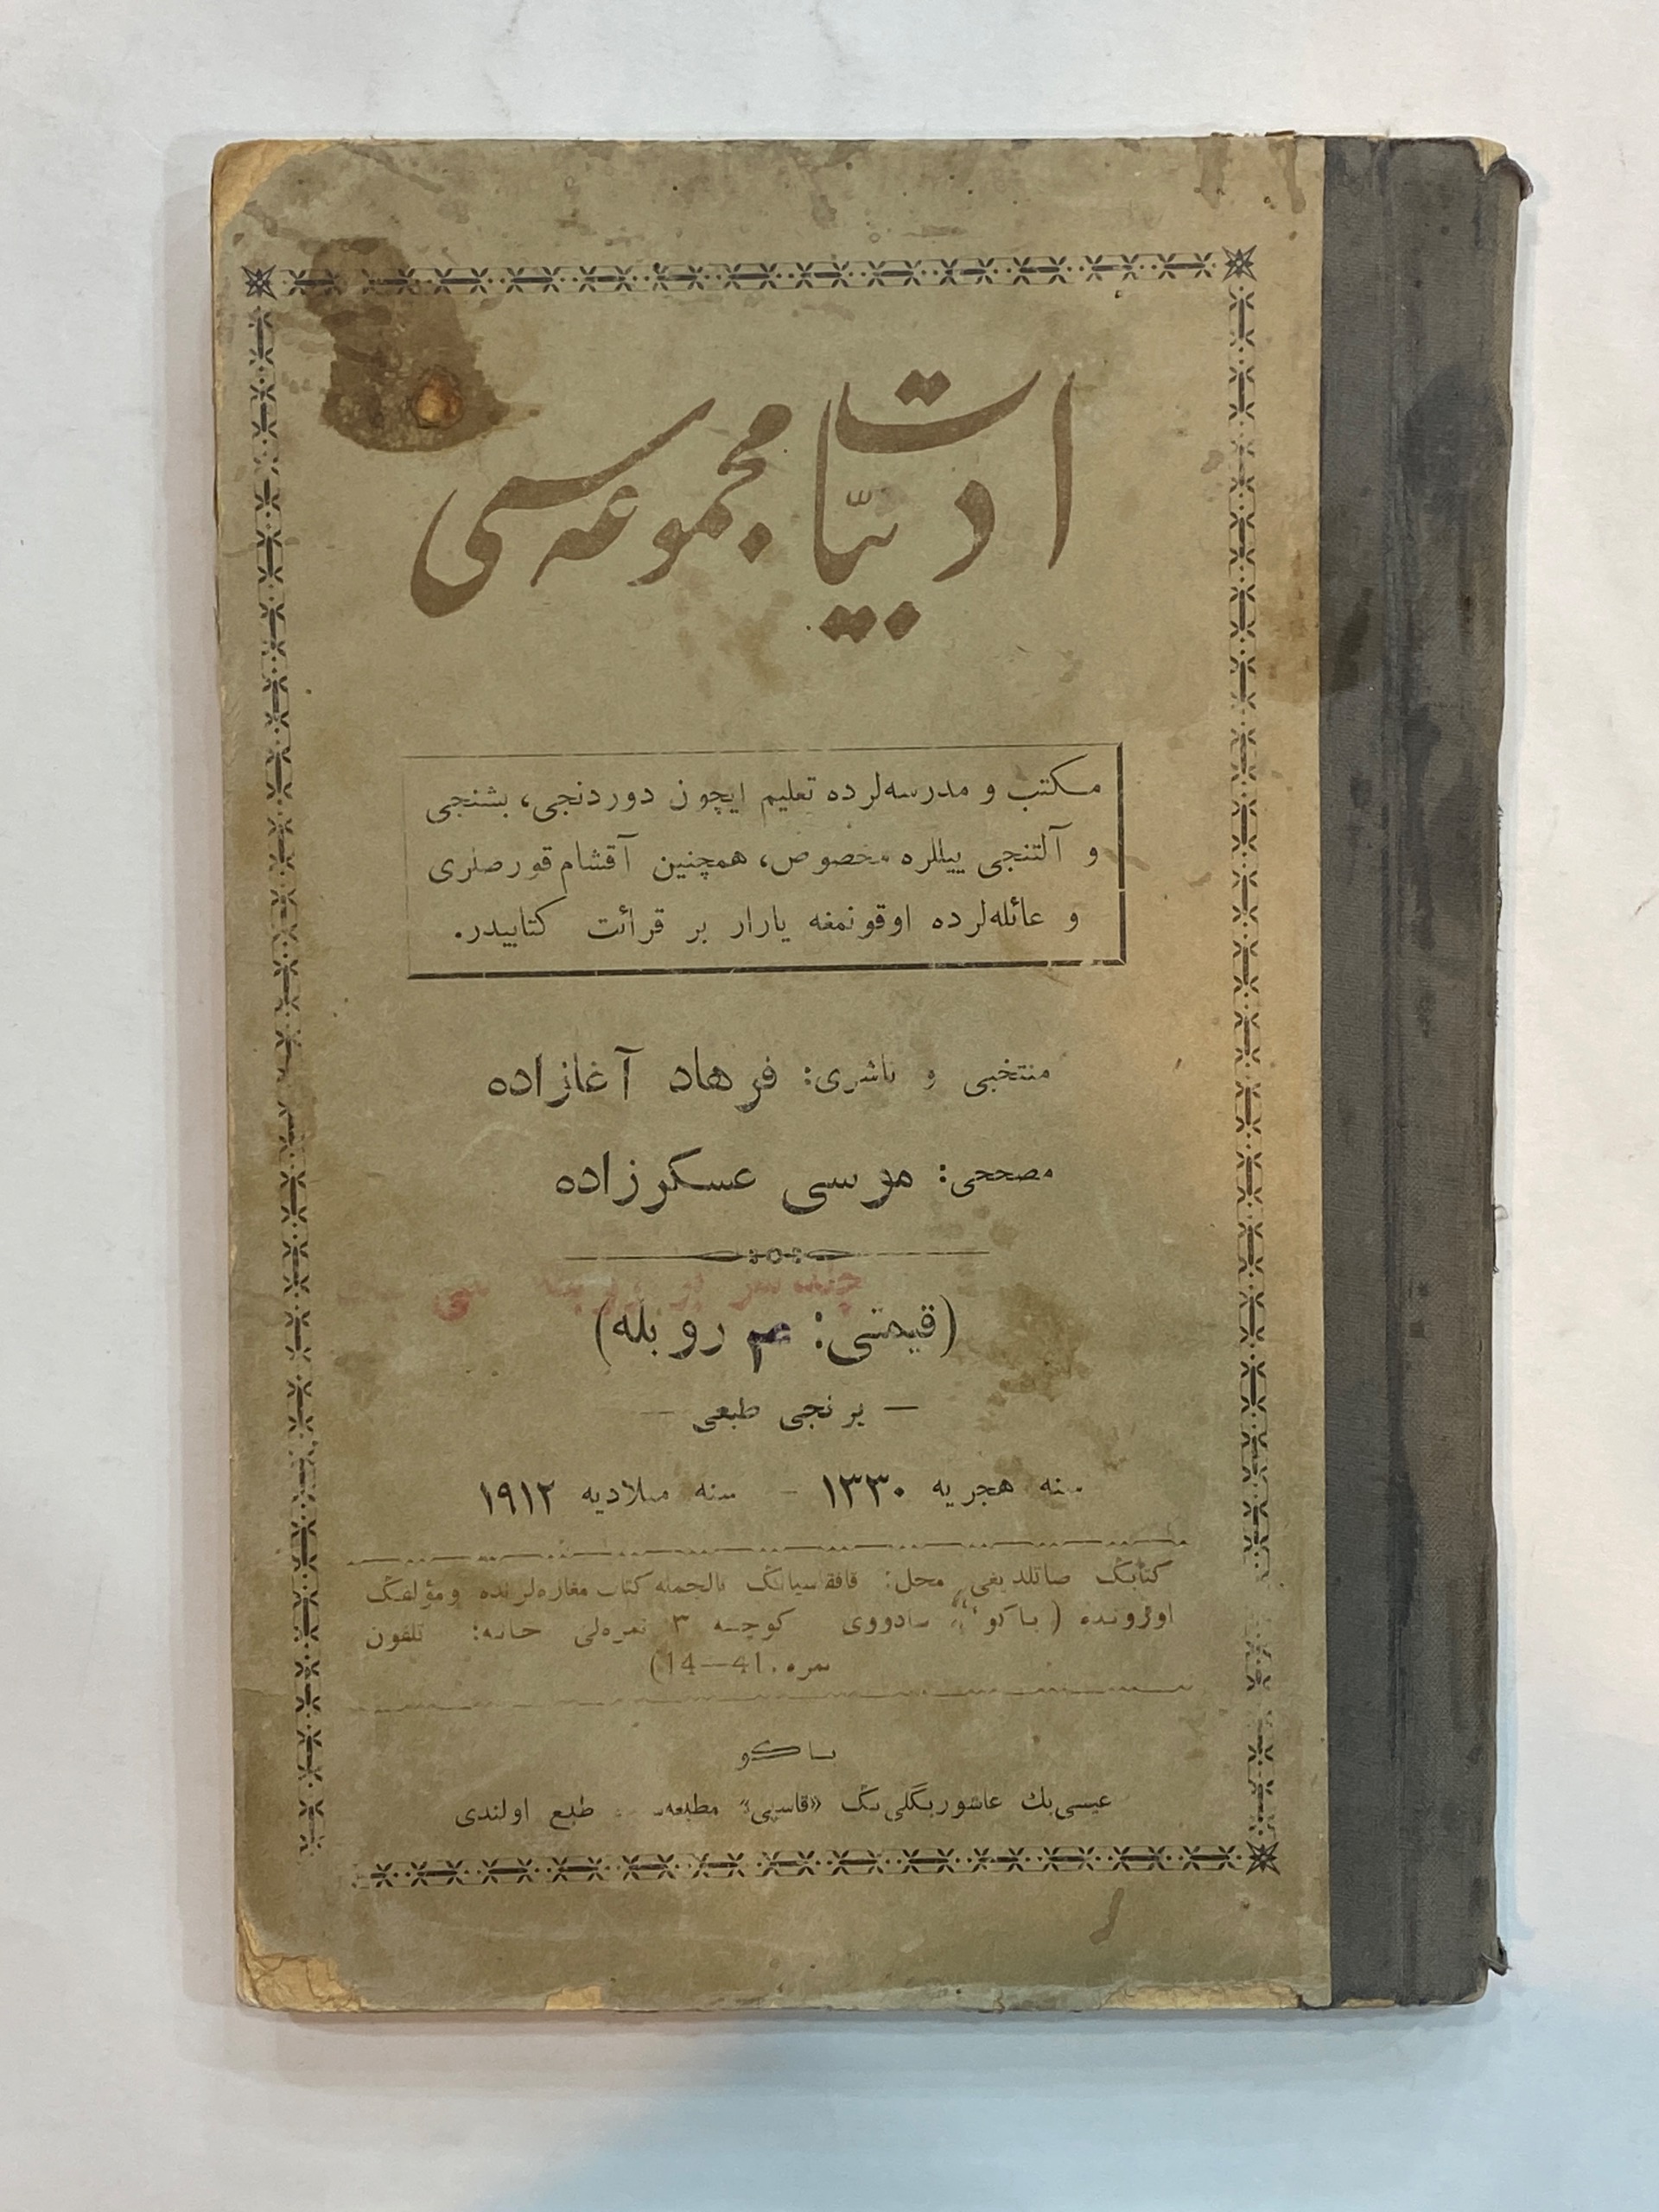 ادبیّات مجموعه‌سی
مکتب و مدرسه‌لرده تعلیم ایچون دوردنجی، بشنجی
و آلتنجی ییللره مخصوص، همچنین آقشام قورصلری
و عائله‌لرده اوقونمغه یارار بر قرائت کتابیدر.
منتخبی و ناشری: فرهاد آغازاده
مصححی: موسی عسکرزاده
(قیمتی: روبله)
— برنجی طبعی —
سنه هجریه ۱۳۳۰ — سنه میلادیه ۱۹۱۲
کتابڭ صاتلدیغی محل: قافقاسیانڭ بالجمله کتاب مغازه‌لرنده و مؤلفڭ
اوزونده (باکو، سادووی کوچه ۳ نمره‌لی خانه: تلفون
نمره. 41—14)
باکو
عیسی بك عاشوربگلی‌نڭ «قاسپی» مطبعه‌ طبع اولندی